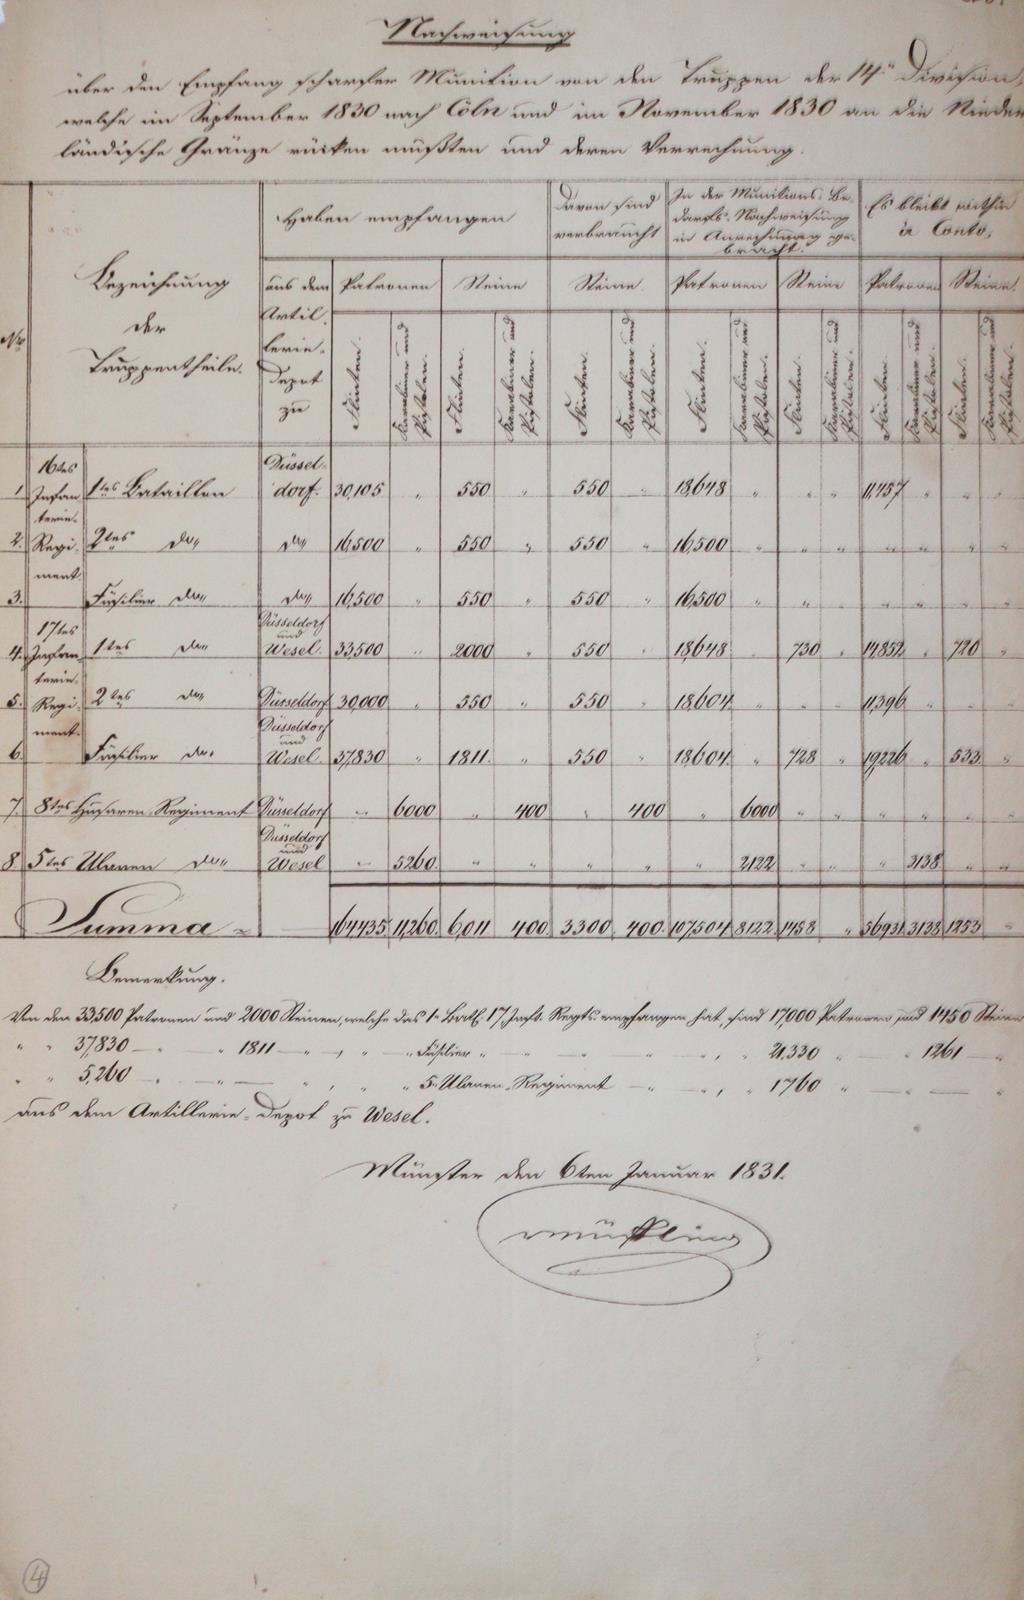 Nachweisung
über den Empfang scharfer Munition von den Truppen der 14ten Division,
welche im September 1830 nach Cöln und im November 1830 an die Nieder
ländische Gränze rücken mußten und deren Verrechnung.
No Bezeichnung der Truppentheile. Haben empfangen Davon sind verbraucht In der Munitions-Bedarfs-Nachweisung in Anrechnung gebracht. Es bleibt mithin à Conto.
aus dem Artillerie-Depot zu Patronen Steine Steine. Patronen Steine Patronen Steine.
Flinten. Karabiner und Pistolen. Flinten. Karabiner und Pistolen. Flinten. Karabiner und Pistolen. Flinten. Karabiner und Pistolen. Flinten. Karabiner und Pistolen. Flinten. Karabiner und Pistolen. Flinten. Karabiner und Pistolen.
16tes Infanterie-Regiment.
1. 1tes Bataillon Düsseldorf. 30,105 " 550 " 550 " 18,648 " " " 11,457 " " "
2. 2tes do do 16,500 " 550 " 550 " 16,500 " " " " " " "
3. Füsilier do do 16,500 " 550 " 550 " 16,500 " " " " " " "
17tes Infanterie-Regiment.
4. 1tes do Düsseldorf und Wesel. 33,500 " 2000 " 550 " 18,648 " 730 " 14,852 " 720 "
5. 2tes do Düsseldorf 30,000 " 550 " 550 " 18,604 " " " 11,396 " " "
6. Füsilier do Düsseldorf und Wesel. 37,830 " 1811. " 550 " 18,604 " 728 " 19,226 " 533 "
7. 8tes Husaren-Regiment Düsseldorf " 6000 " 400 " 400 " 6000 " " " " " "
8. 5tes Ulanen do Düsseldorf und Wesel " 5260. " " " " " 2122 " " " 3138 " "
Summa 164,435 11,260. 6,011 400. 3300 400. 107,504 8122 1458 " 56931 3138 1253 "
Bemerkung.
Von den 33,500 Patronen und 2000 Steinen, welche das 1te Batl. 17. Inft. Regts. empfangen hat, sind 17,000 Patronen und 1450 Steine
" " 37,830 " " 1811 " " " Füsilier " " " " 21,330 " " 1261 "
" " 5,260 " " " " " 5. Ulanen-Regiment " " " 1760 " " " "
aus dem Artillerie-Depot zu Wesel.
Münster den 6ten Januar 1831.
Müffling
4